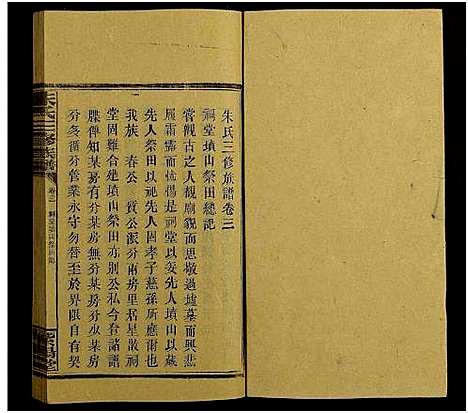 朱氏三修族譜卷三
祠堂墳山祭田總記
嘗觀古之人覩廟貌而思敬過墟墓而興悲
履霜露而怵惕是祠堂以妥先人墳山以藏
先人祭田以祀先人固孝子慈孫所應爾也
我族 春公 質公派分兩房里居星散祠
堂固難合建墳山祭田亦別公私今登諸譜
牒俾知某房有分某房無分某房分少某房
分多循分管業永守勿替至於界限自有契
朱氏三修族譜
卷三